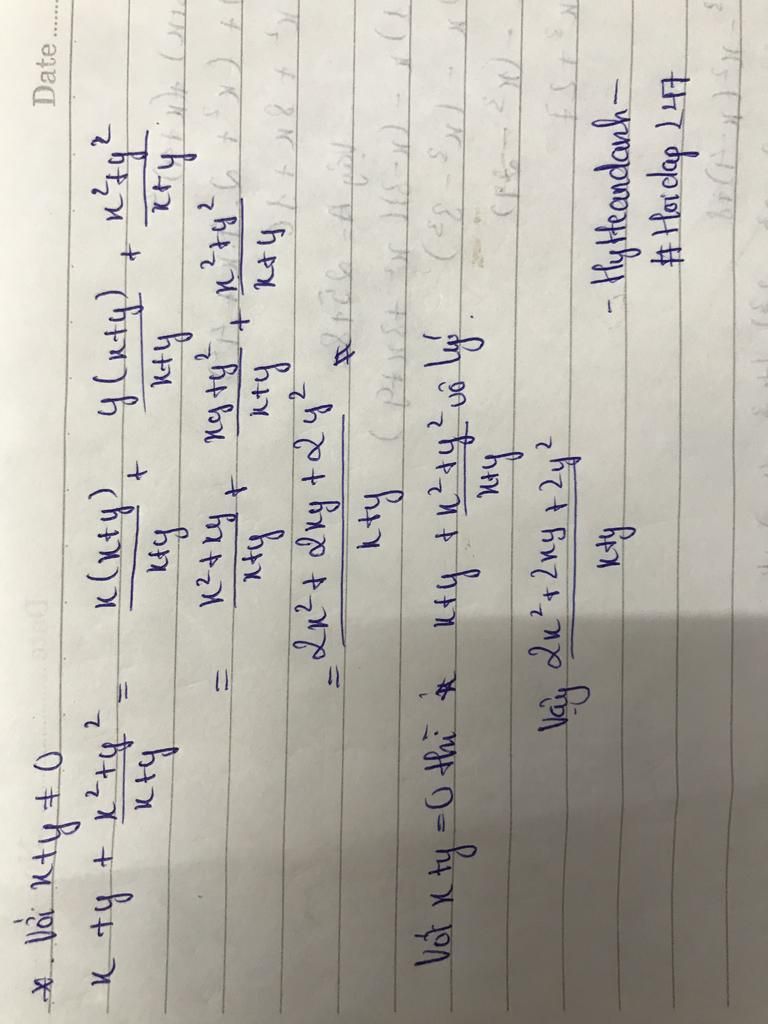 Date.......
* . Với x+y ≠ 0
x + y + \frac{x^2+y^2}{x+y} = \frac{x(x+y)}{x+y} + \frac{y(x+y)}{x+y} + \frac{x^2+y^2}{x+y}
= \frac{x^2+xy}{x+y} + \frac{xy+y^2}{x+y} + \frac{x^2+y^2}{x+y}
= \frac{2x^2+2xy+2y^2}{x+y} *
Với x+y = 0 thì x+y + \frac{x^2+y^2}{x+y} vô lý.
Vậy \frac{2x^2+2xy+2y^2}{x+y}
- HyHeandanh -
# Hoidap 247